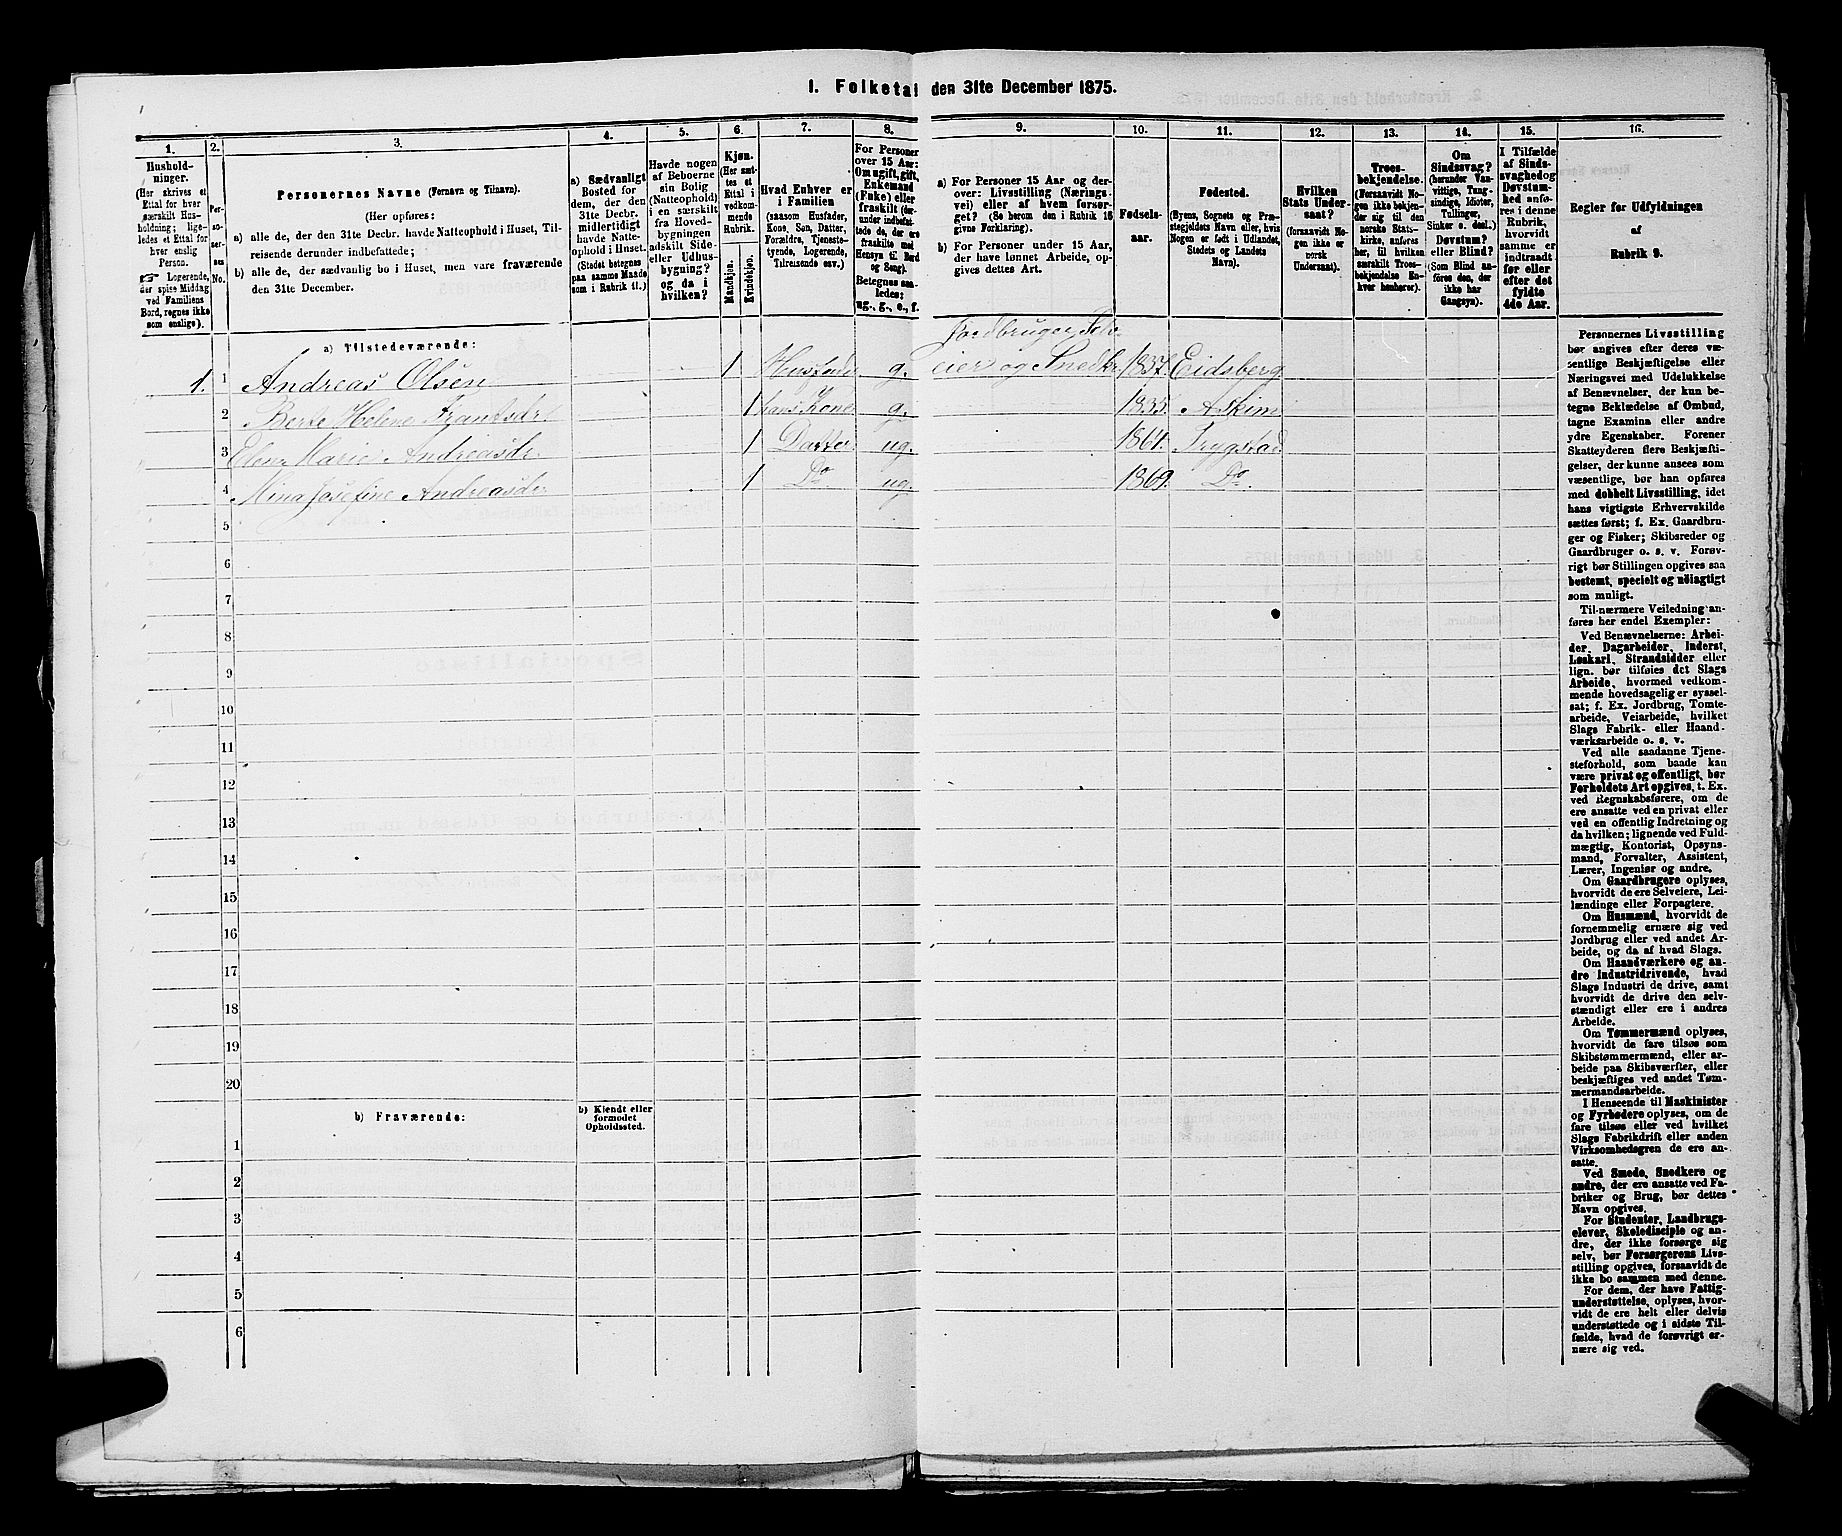 1. Folketal den 31te December 1875.
1.
2.
3.
4.
5.
6.
7.
8.
9.
10.
11.
12.
13.
14.
15.
16.
Hushold-
ninger.
(Her skrives et
Ettal for hver
særskilt Hus-
holdning; lige-
ledes et Ettal for
hver enslig
Person.
☞ Logerende,
der spise Middag
ved Familiens
Bord, regnes ikke
som enslige).
Per-
so-
ner-
nes
No.
Personernes Navne (Fornavn og Tilnavn).
(Her opføres:
a) alle de, der den 31te Decbr. havde Natteophold i Huset, Til-
reisende derunder indbefattede;
b) alle de, der sædvanlig bo i Huset, men vare fraværende
den 31te December.
a) Sædvanligt
Bosted for
dem, der den
31te Decbr.
midlertidigt
havde Natte-
ophold i Huset.
(Stedet betegnes
paa samme Maade
som i Rubrik 11.)
Havde nogen
af Beboerne
sin Bolig
(Natteophold)
i en særskilt
fra Hoved-
bygningen
adskilt Side-
eller Udhus-
bygning?
og da i
hvilken?
Kjøn.
(Her sæt-
tes et
Ettal i
vedkom-
mende
Rubrik.
Mandkjøn.
Kvindekjøn.
Hvad Enhver er
i Familien
(saasom Husfader,
Kone, Søn, Datter,
Forældre, Tjeneste-
tyende, Logerende,
Tilreisende osv.)
For Personer
over 15 Aar:
Om ugift, gift,
Enkemand
(Enke) eller
fraskilt (der-
under indbefat-
tede de, der ere
fraskilte med
Hensyn til Bord
og Seng).
Betegnes saa-
ledes:
ug., g., e., f.
a) For Personer 15 Aar og der-
over: Livsstilling (Nærings-
vei) eller af hvem forsør-
get? (Se herom den i Rubrik 16
givne Forklaring).
b) For Personer under 15 Aar,
der have lønnet Arbeide, op-
gives dettes Art.
Fødsels-
aar.
Fødested.
(Byens, Sognets og Præ-
stegjeldets Navn eller, hvis
Nogen er født i Udlandet,
Stedets og Landets
Navn).
Hvilken
Stats Under-
saat?
(forsaavidt No-
gen ikke er
norsk
Undersaat).
Troes-
bekjendelse.
(Forsaavidt No-
gen ikke bekjen-
der sig til den
norske Stats-
kirke, anføres
her, til hvilken
særskilt Troes-
bekjendelse En-
hver henhører).
Om
Sindssvag?
(herunder Van-
vittige, Tung-
sindige, Idioter,
Tullinger,
Sinker o. desl.)
Døvstum?
eller Blind?
(Som Blind an-
føres den, der
ikke har
Gangsyn).
I Tilfælde
af Sinds-
svaghed og
Døvstum-
hed anfø-
res i denne
Rubrik,
hvorvidt
samme er
indtraadt
før eller
efter det
fyldte
4de Aar.
Regler for Udfyldningen
af
Rubrik 9.
a) Tilstedeværende:
Jordbruger Selv-
1. 1 Andreas Olsen 1 Husfader g. eier og Snedker 1837. Eidsberg
2 Berte Helene Frantsdr. 1 hans Kone g. 1835. Askim
3 Elen Marie Andreasdr. 1 Datter ug. 1861. Trygstad
4 Mina Josefine Andreasdr 1 Do ug. 1869. Do.
5
6
7
8
9
10
11
12
13
14
15
16
17
18
19
20
b) Fraværende:
b) Kjendt eller
formodet
Opholdssted.
1
2
3
4
5
6
Personernes Livsstilling
bør angives efter deres væ-
sentlige Beskjæftigelse eller
Næringsvei med Udelukkelse
af Benævnelser, der kun be-
tegne Beklædelse af Ombud,
tagne Examina eller andre
ydre Egenskaber. Forener
Skatteyderen flere Beskjæfti-
gelser, der kunne ansees som
væsentlige, bør han opføres
med dobbelt Livsstilling, idet
hans vigtigste Erhvervskilde
sættes først; f. Ex. Gaardbru-
ger og Fisker; Skibsreder og
Gaardbruger o. s. v. Forøv-
rigt bør Stillingen opgives saa
bestemt, specielt og nøiagtigt
som muligt.
Til nærmere Veiledning an-
føres her endel Exempler:
Ved Benævnelserne: Arbei-
der, Dagarbeider, Inderst,
Løskarl, Strandsidder eller
lign. bør tilføies det Slags
Arbeide, hvormed vedkom-
mende hovedsagelig er syssel-
sat; f. Ex. Jordbrug, Tomte-
arbeide, Veiarbeide, hvilket
Slags Fabrik- eller Haand-
værksarbeide o. s. v.
Ved alle saadanne Tjene-
steforhold, som baade kan
være privat og offentligt, bør
Forholdets Art opgives, t. Ex.
ved Regnskabsførere, om de
ere ansatte ved en privat eller
ved en offentlig Indretning og
da hvilken; lignende ved Fuld-
mægtig, Kontorist, Opsyns-
mand, Forvalter, Assistent,
Lærer, Ingeniør og andre.
Om Gaardbrugere oplyses,
hvorvidt de ere Selveiere, Lei-
lændinge eller Forpagtere.
Om Husmænd, hvorvidt de
fornemmelig ernære sig ved
Jordbrug eller ved andet Ar-
beide, og da af hvad Slags.
Om Haandværkere og an-
dre Industridrivende, hvad
Slags Industri de drive, samt
hvorvidt de drive den selv-
stændigt eller ere i andres
Arbeide.
Om Tømmermænd oplyses,
hvorvidt de fare tilsøs som
Skibstømmermænd, eller ar-
beide paa Skibsværfter, eller
beskjæftiges ved andet Tøm-
mermandsarbeide.
I Henseende til Maskinister
og Fyrbødere oplyses, om de
fare tilsøs eller ved hvilket
Slags Fabrikdrift eller anden
Virksomhedsgren de ere an-
satte.
Ved Smede, Snedkere og
andre, der ere ansatte ved Fa-
briker og Brug, bør dettes
Navn opgives.
For Studenter, Landbrugs-
elever, Skoledisciple og an-
dre, der ikke forsørge sig
selv, bør Forsørgerens Livs-
stilling opgives, forsaavidt de
ikke bo sammen med denne.
For dem, der have Fattig-
understøttelse, oplyses, hvor-
vidt de ere helt eller delvis
understøttede og i sidste Til-
fælde, hvad de forøvrigt er-
nære sig ved.